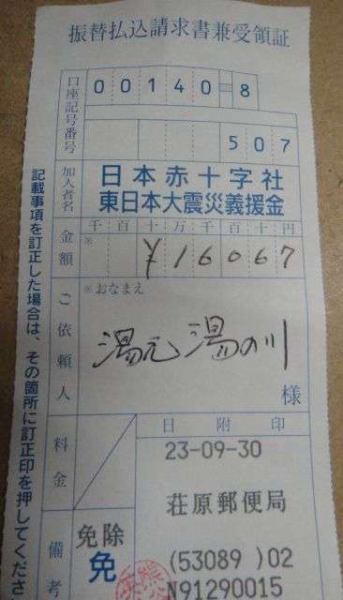 振替払込請求書兼受領証
口座記号番号
00140-8
507
加入者名
日本赤十字社
東日本大震災義援金
金額
千百十万千百十円
※
¥16067
ご依頼人
※おなまえ
湯元 湯の川
様
料金
日附印
23-09-30
荘原郵便局
(53089 )02
N91290015
備考
免除
免
記載事項を訂正した場合は、その箇所に訂正印を押してくださ